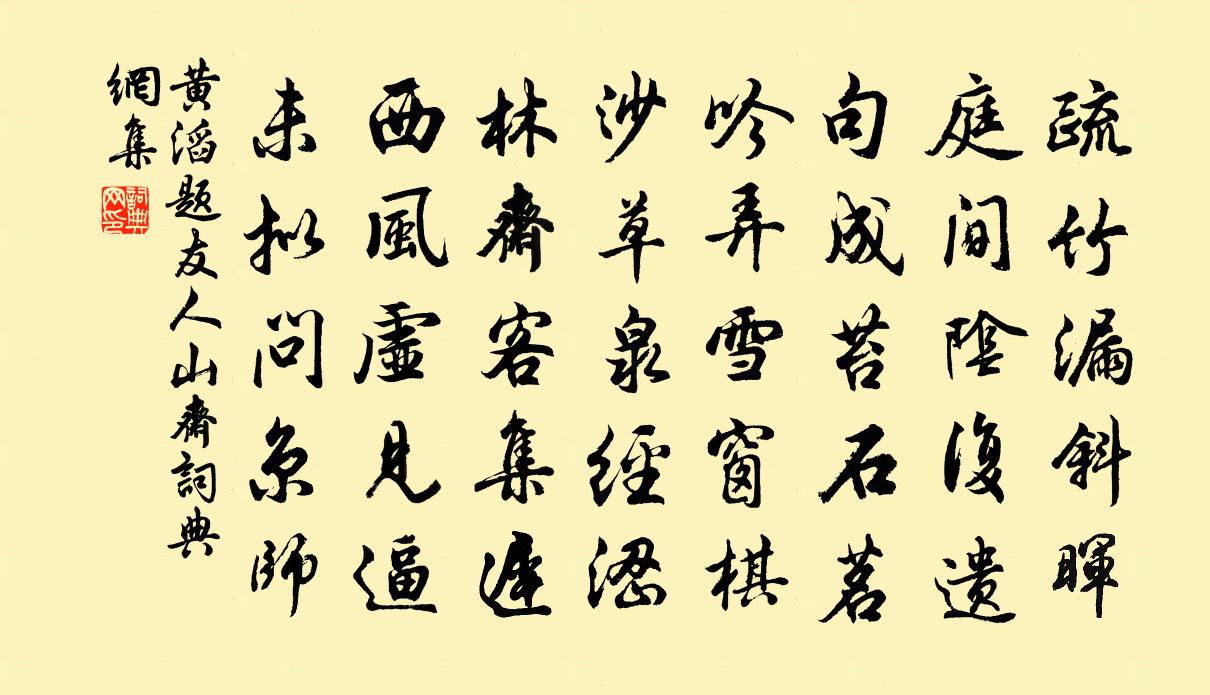 疏竹漏斜暉
庭間陰復遺
句成苔石茗
吟弄雪窗棋
沙草泉經澀
林齋客集遲
西風虛見逼
未擬問京師
黃滔題友人山齋詞典
網集
詞典
网印